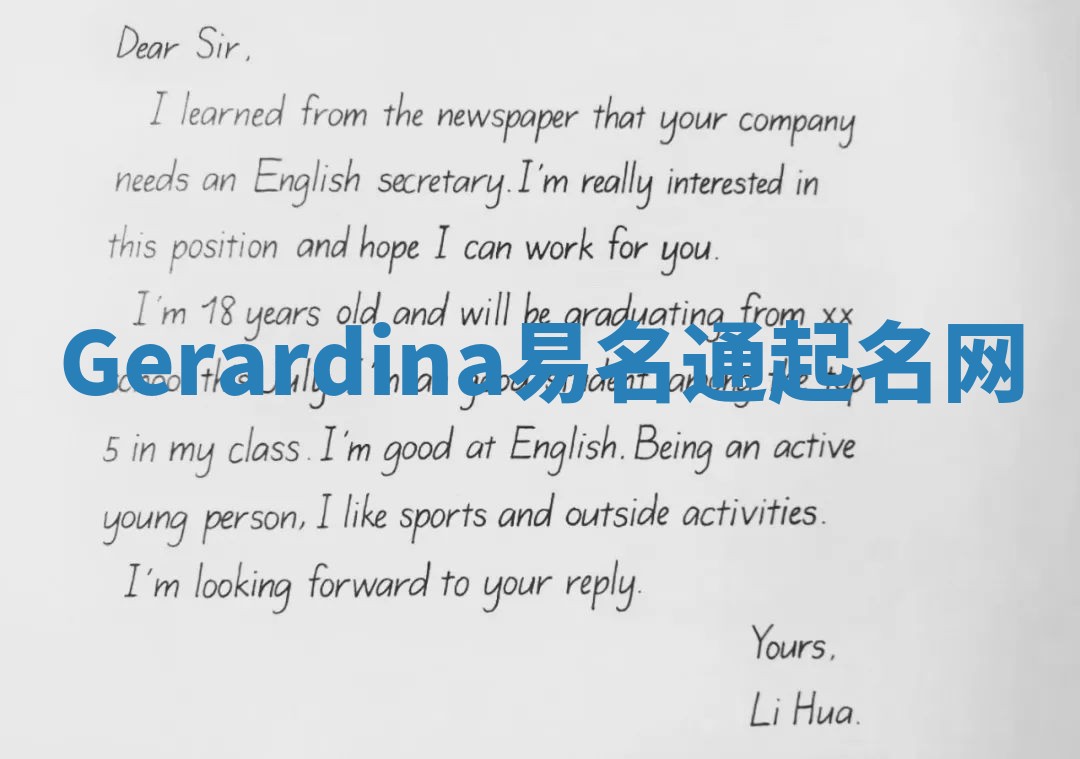 Dear Sir,
I learned from the newspaper that your company
needs an English secretary. I'm really interested in
this position and hope I can work for you.
I'm 18 years old and will be graduating from xx
Gerardina易名通起名网
school this July. I'm a good student among the top
5 in my class. I'm good at English. Being an active
young person, I like sports and outside activities.
I'm looking forward to your reply.
Yours,
Li Hua.